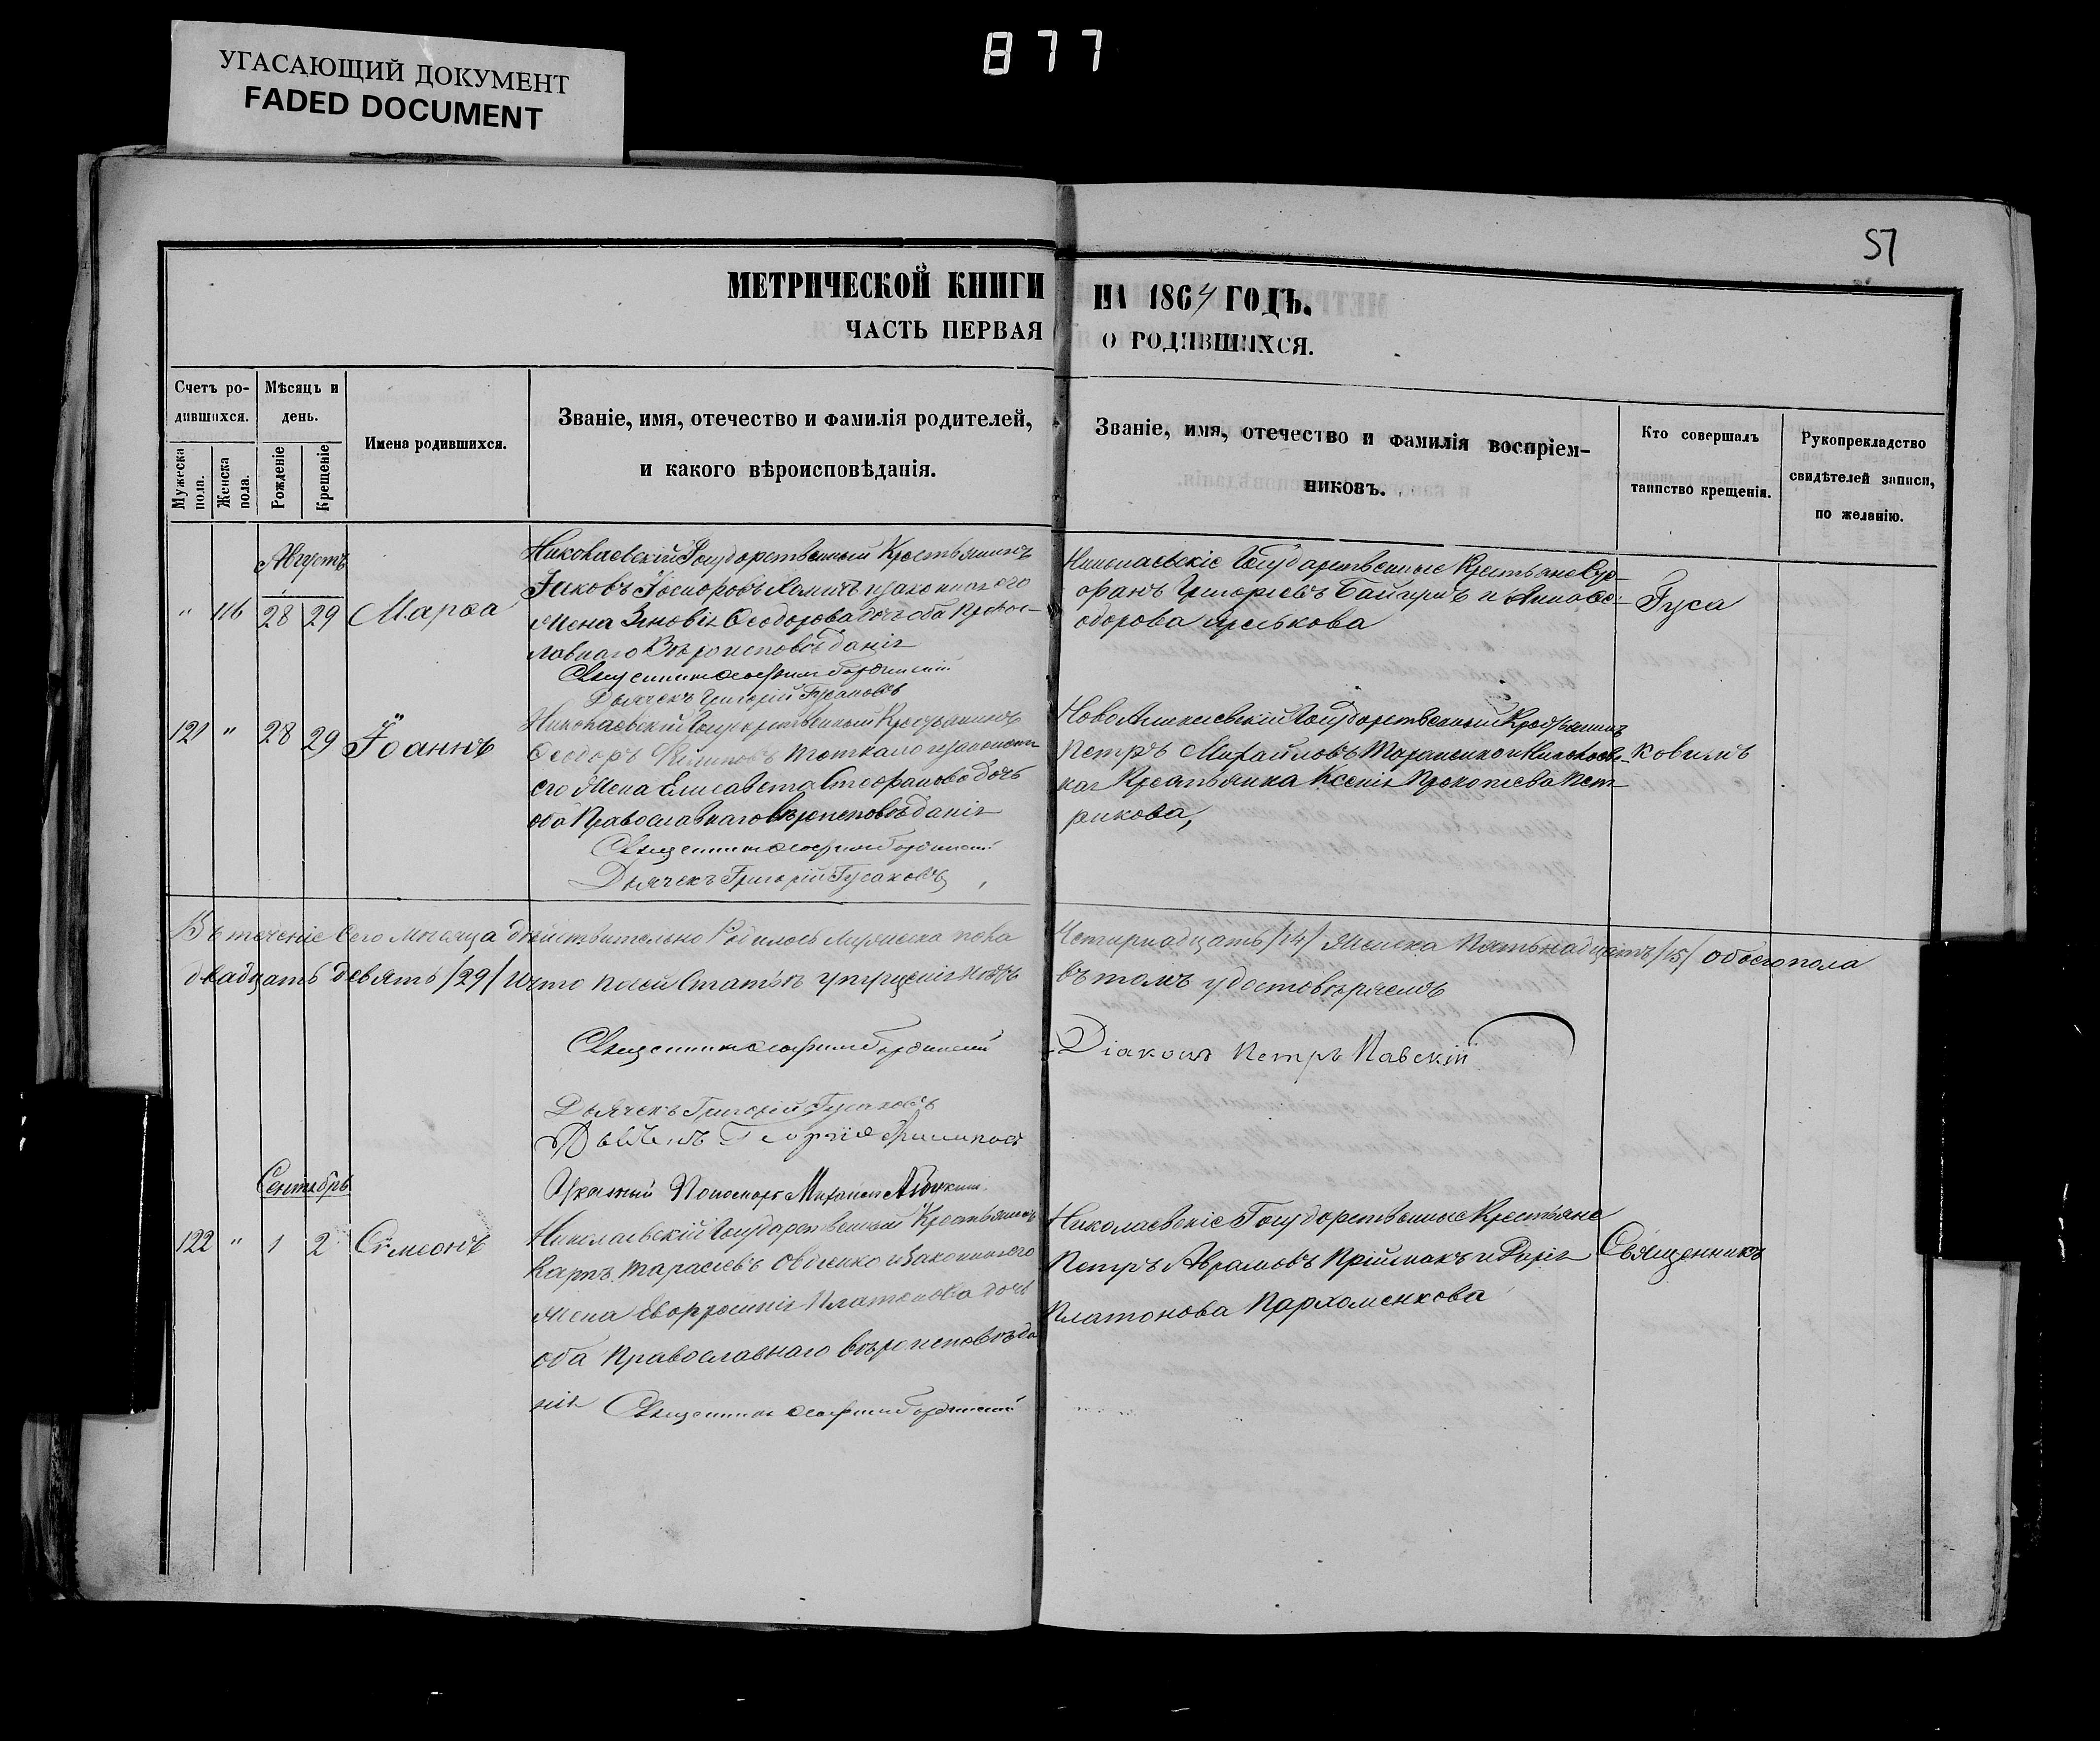 877
УГАСАЮЩИЙ ДОКУМЕНТ
FADED DOCUMENT
57
МЕТРИЧЕСКОЙ КНИГИ НА 1864 ГОДЪ.
ЧАСТЬ ПЕРВАЯ О РОДИВШИХСЯ.
Счетъ ро-
дившихся.
Мужеска пола.
Женска пола.
Мѣсяцъ и
день.
Рожденіе
Крещеніе
Имена родившихся.
Званіе, имя, отечество и фамилія родителей,
и какого вѣроисповѣданія.
Званіе, имя, отечество и фамилія воспріем-
никовъ.
Кто совершалъ
таинство крещенія.
Рукоприкладство
свидѣтелей записи,
по желанію.
Августъ
" 116 28 29 Марѳа
Николаевскій Государственный Крестьянинъ
Яковъ законная его
жена Зиновія Ѳеодорова дочь оба Правос-
лавнаго Вѣроисповѣданія
Священникъ
Дьячекъ Григорій Гусаковъ
Николаевскіе Государственные Крестьяне
Григорьевъ и Анна Ѳе-
одорова
Гуса
121 " 28 29 Іоаннъ
Николаевскій Государственный Крестьянинъ
Ѳеодоръ законная
его жена Елисавета Стефанова дочь
оба Православнаго Вѣроисповѣданія
Священникъ
Дьячекъ Григорій Гусаковъ
Государственный Крестьянинъ
Петръ Михайловъ Тараненко и Николаевс-
кая Крестьянка Ксенія Прокопіева Пет-
рикова,
ковымъ
Въ теченіе сего мѣсяца дѣйствительно Родилось Мужеска пола Четырнадцать /14/ Женска Пятьнадцать /15/ обоего пола
двадцать девять /29/ и что по сей Статьѣ упущенія нѣтъ въ томъ удостовѣряемъ
Священникъ
Діаконъ Петръ Павскій
Дьячекъ Григорій Гусаковъ
Дьячекъ Георгій
Пономарь Михаилъ
Сентябрь
122 " 1 2 Сѵмеонъ
Николаевскій Государственный Крестьянинъ
Карпъ Тарасіевъ Овдіенко и Законная его
жена Евфросинія Платонова дочь
оба Православнаго вѣроисповѣда
нія Священникъ
Николаевскіе Государственные Крестьяне
Петръ Аврамовъ Пріймакъ и
Платонова Пархоменкова
Священникъ